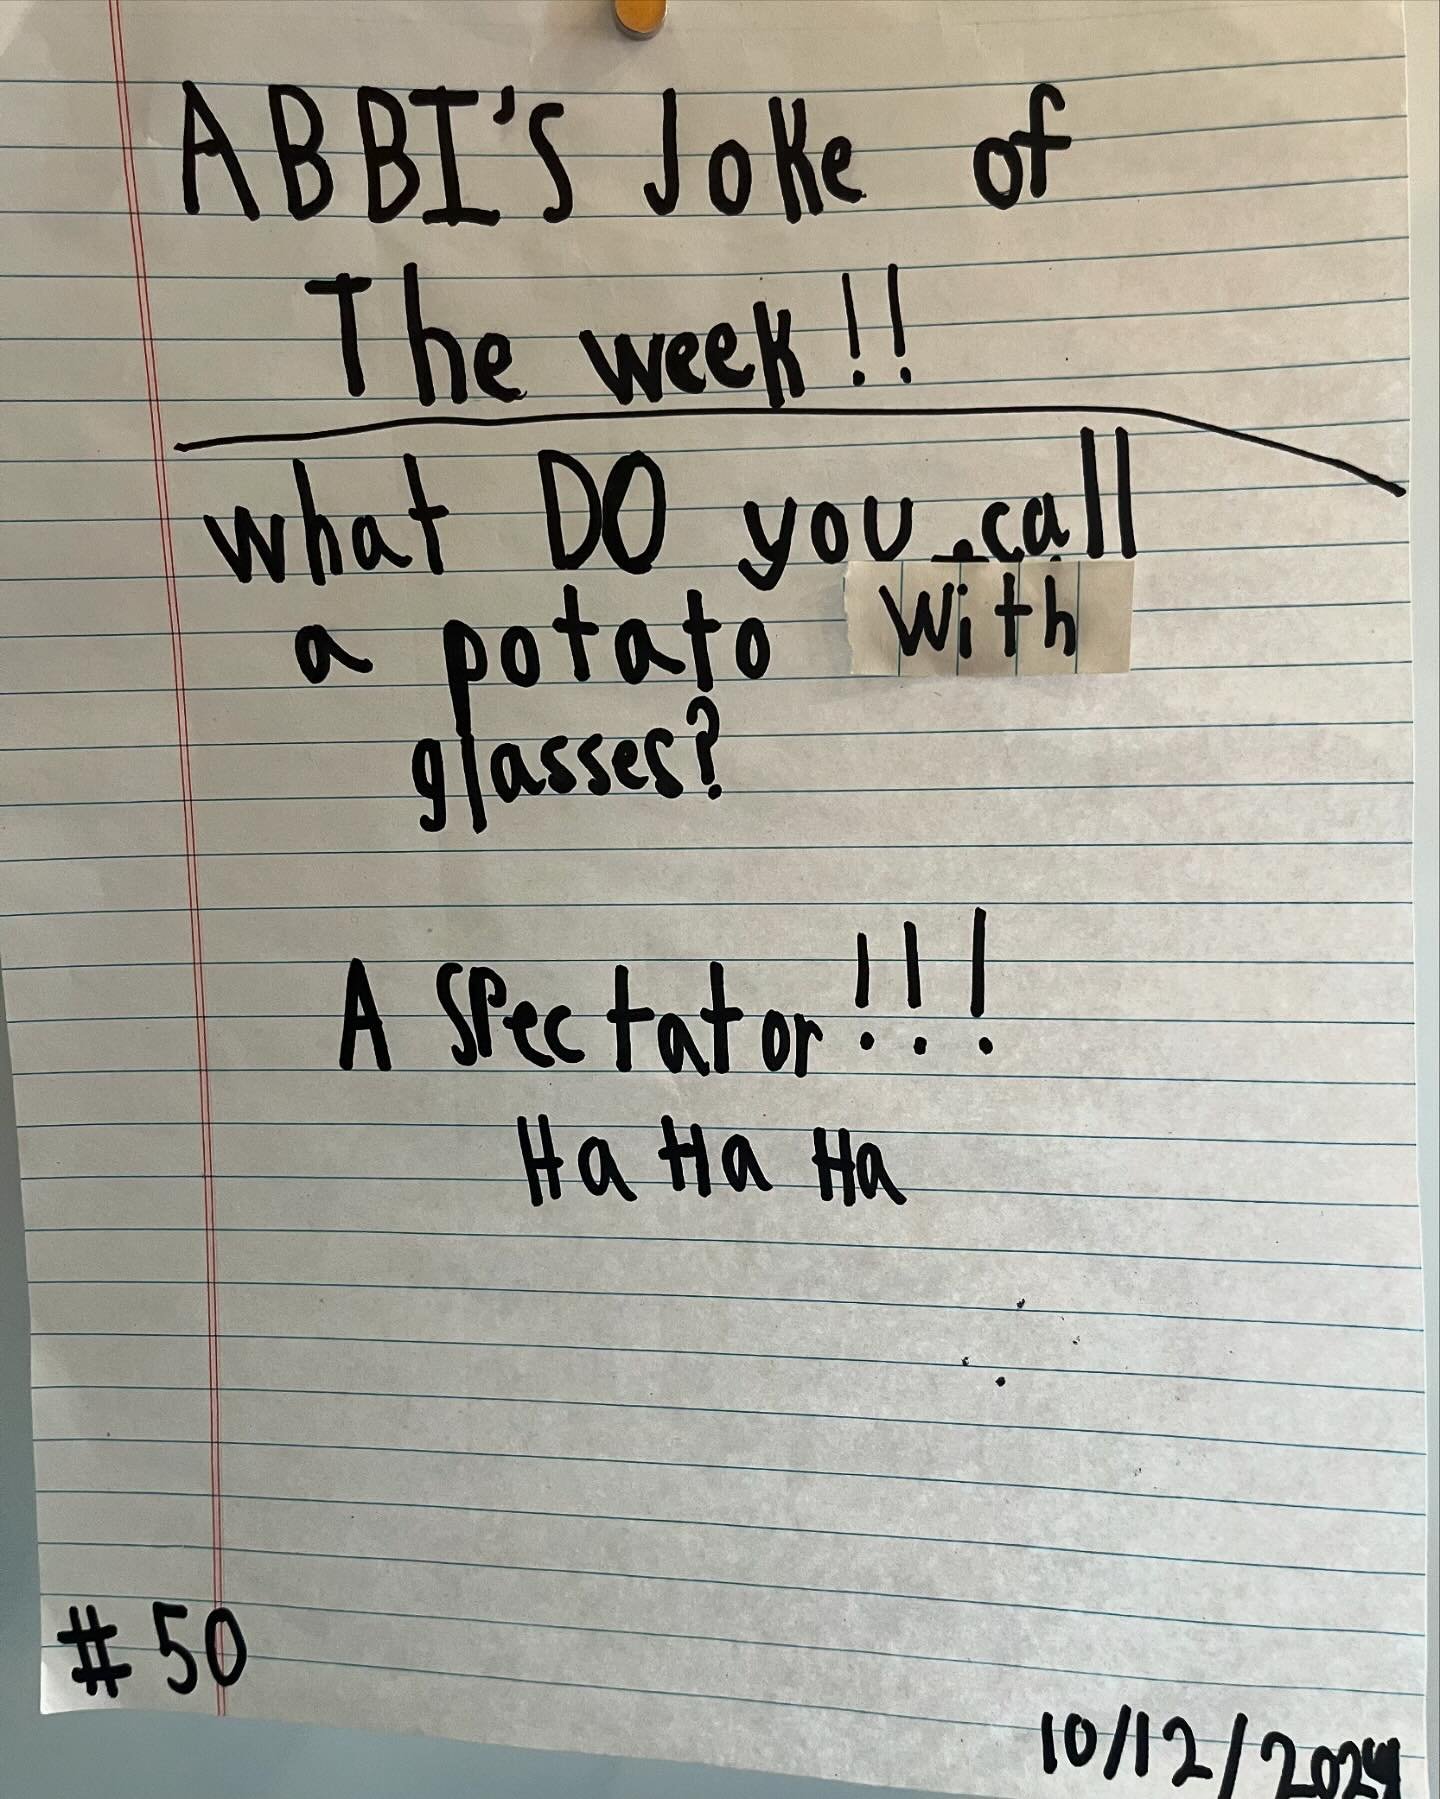 ABBI'S Joke of
The week!!
what DO you call
a potato with
glasses?
A Spectator!!!
Ha Ha Ha
#50
10/12/2024